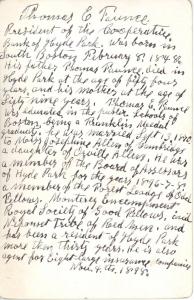 Thomas E. Faunce
President of the Cooperative
Bank of Hyde Park. Was born in
South Boston February 8, 1854.
His father Thomas Faunce, died in
Hyde Park at the age of sixty four
years, and his mother at the age of
Sixty nine years. Thomas E. Faunce
was educated in the public schools of
Boston, being a Franklin Medal
graduate. He was married
to Miss Josephine Allen of Cambridge
a daughter of Orville Allen. He was
a member of the Board of Assessors
of Hyde Park for the years 1896-7-8
a member of the Forest Lodge of Odd
Fellows. Monterey Encampment
Royal Society of Good Fellows. And
Neponset Tribe of Red Men, and
has been a resident of Hyde Park
more than thirty years. He is also
agent for Eight large insurance companies
Nov. 9th, 1898